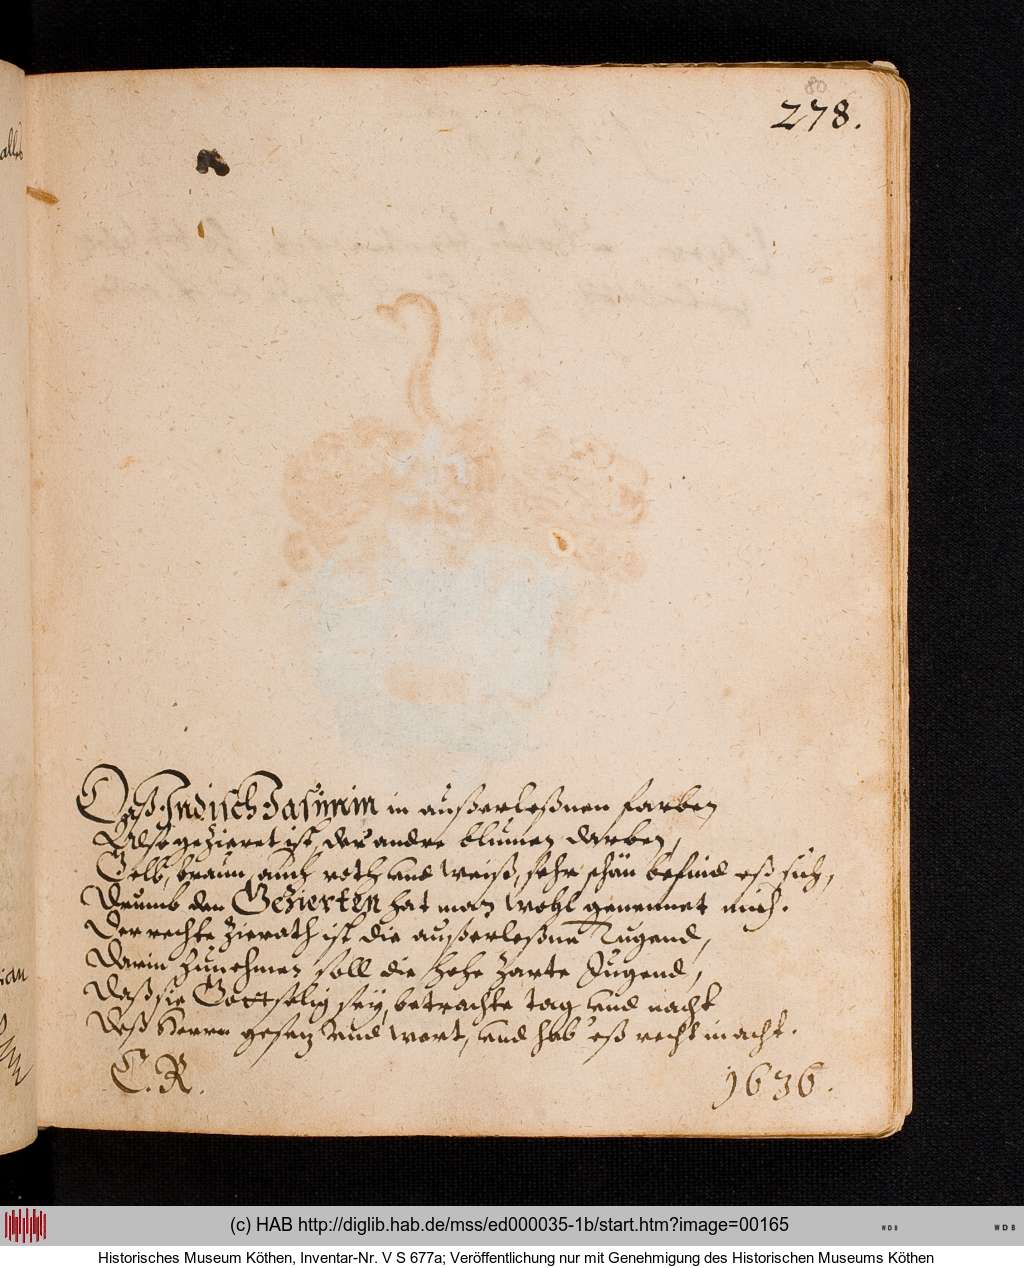 80
278.
Daß Indisch Jasimin in außerleßnen farben
Also gezieret ist, der andre blumen darben,
Gelb, braun, auch roth und weiß, sehr schön befind eß sich,
Drumb den Gezierten hat man wohl genennet mich.
Der rechte Zierath ist die außerleßne Tugend,
Darin zunehmen soll die hohe zarte Jugend,
Daß sie Gottselig sey, betrachte tag und nacht
Deß Herrn gesetz und wort, und hab' eß recht in acht.
C. R.
1636.
(c) HAB http://diglib.hab.de/mss/ed000035-1b/start.htm?image=00165
WDB
WDB
Historisches Museum Köthen, Inventar-Nr. V S 677a; Veröffentlichung nur mit Genehmigung des Historischen Museums Köthen